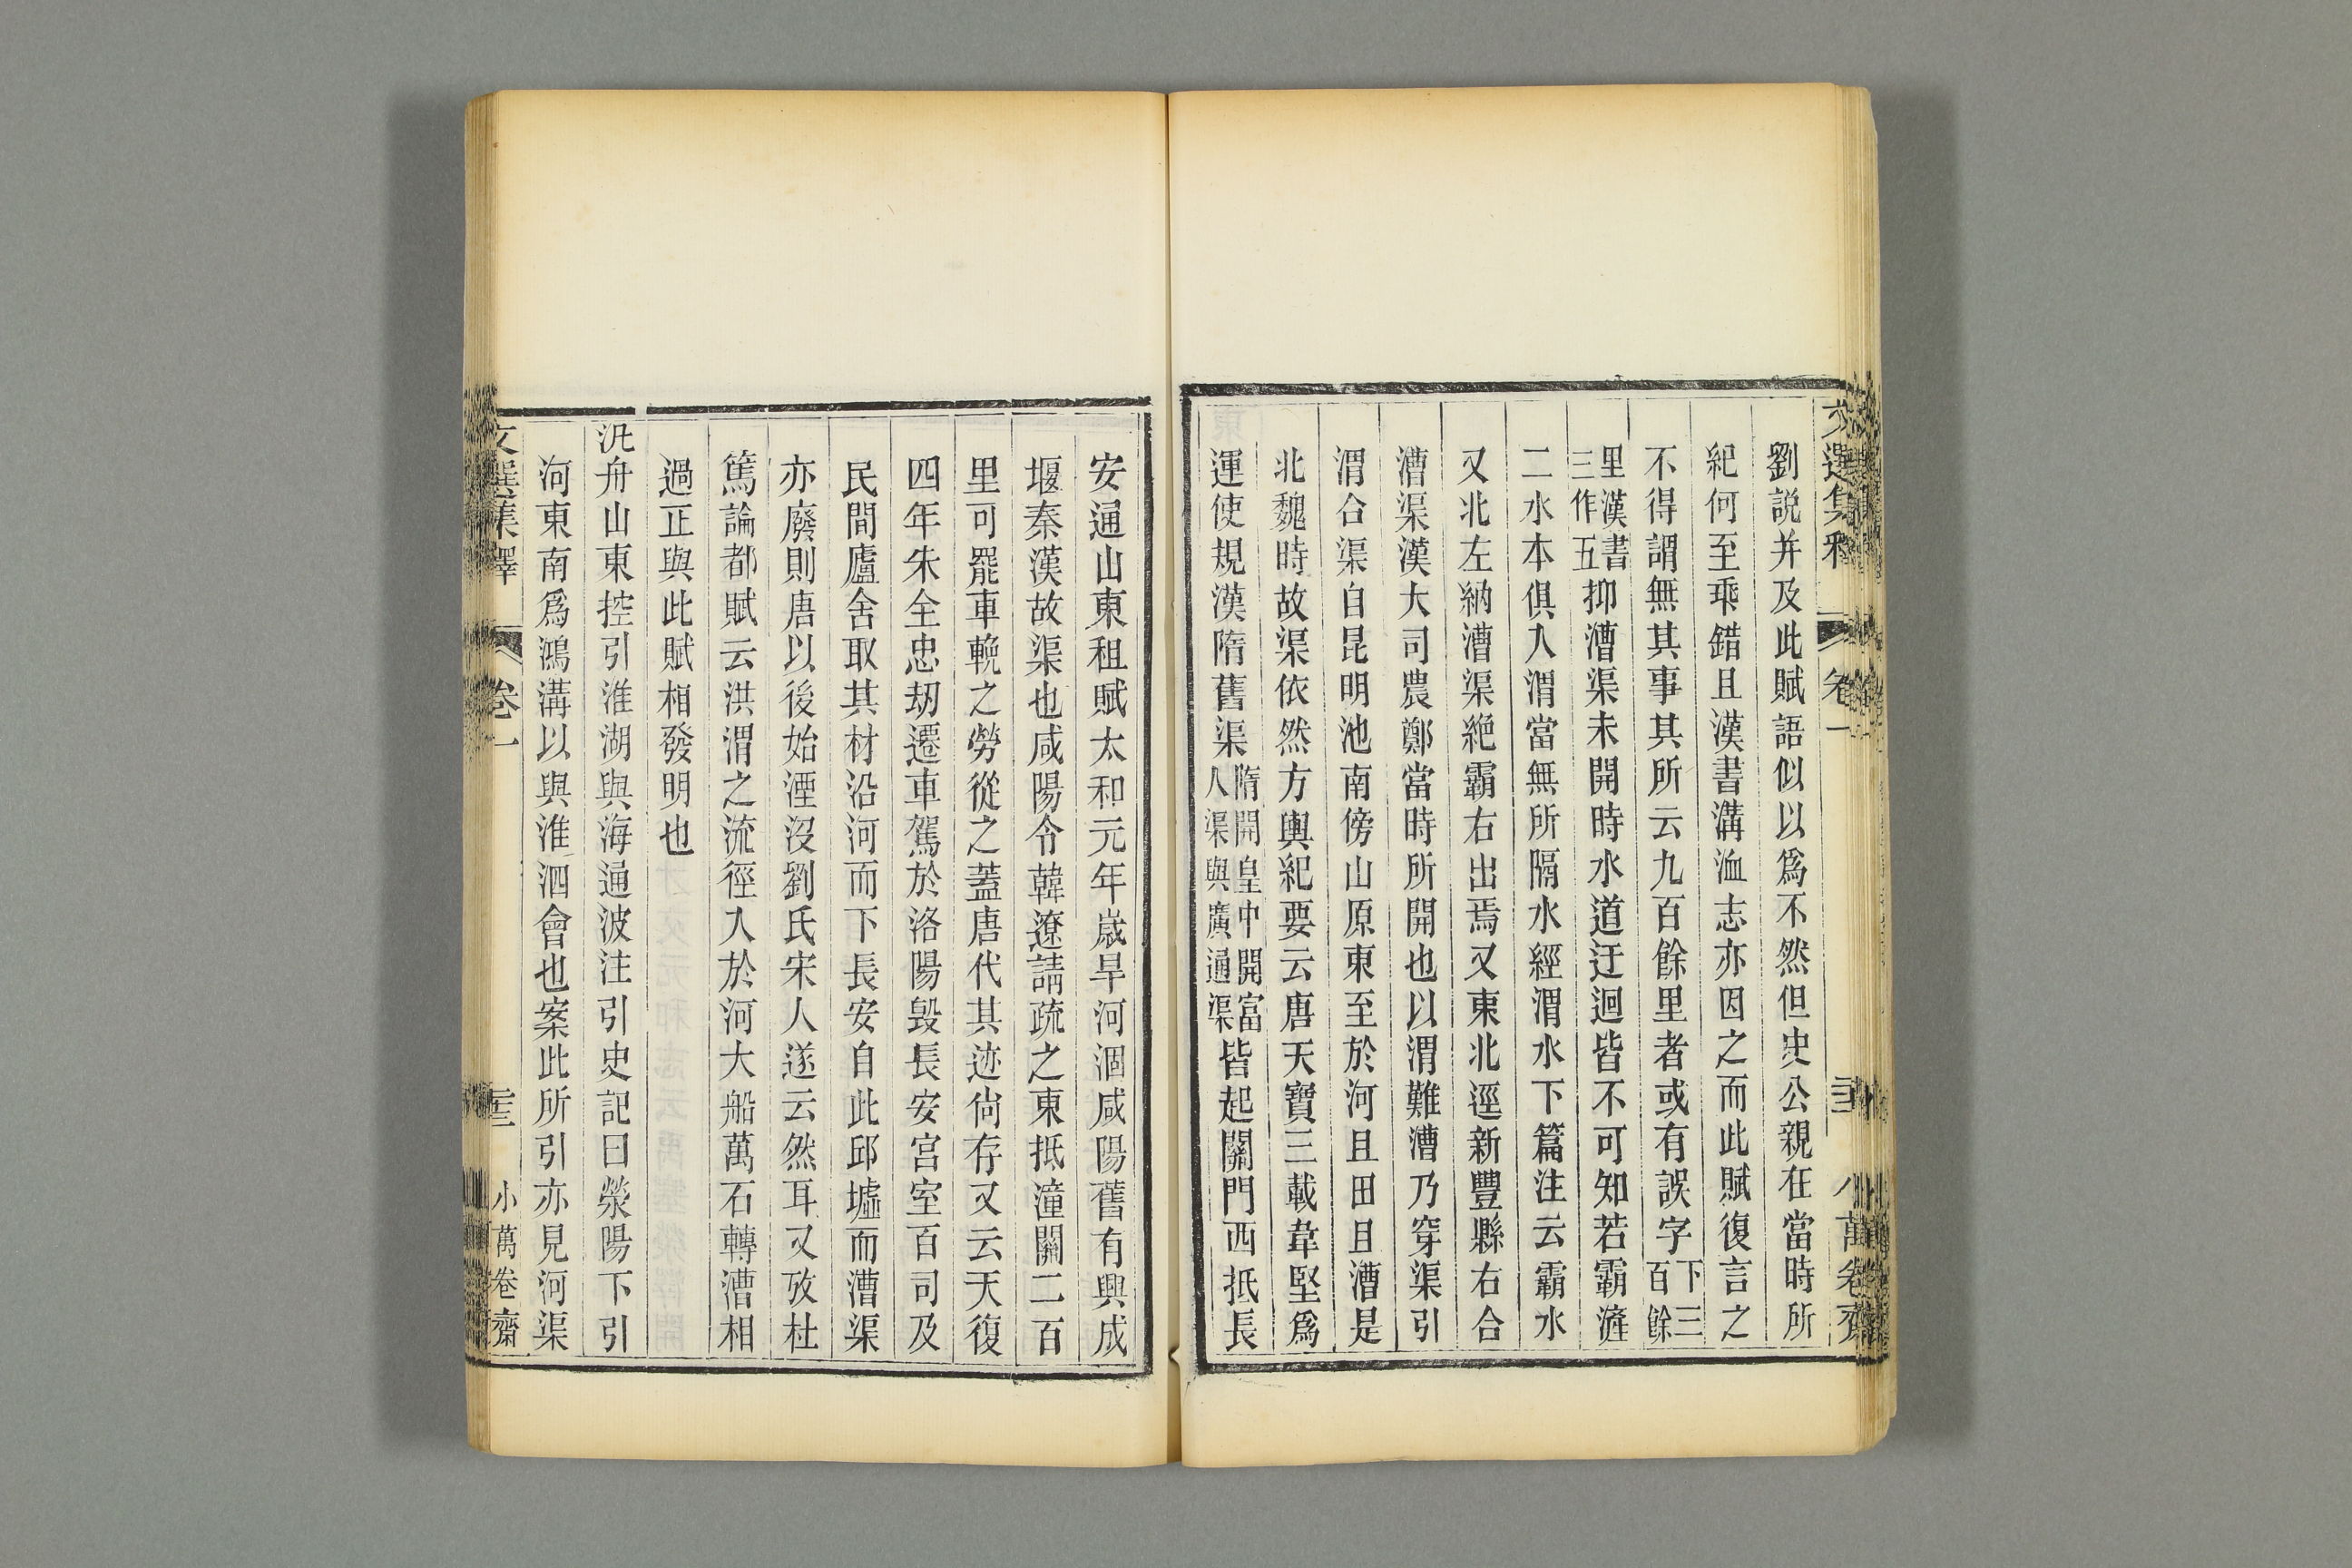 文選集釋 卷一 小萬卷齋
劉説并及此賦語似以爲不然但史公親在當時所
紀何至乖錯且漢書溝洫志亦因之而此賦復言之
不得謂無其事其所云九百餘里者或有誤字下三百餘
里漢書三作五抑漕渠未開時水道迂迴皆不可知若霸滻
二水本俱入渭當無所隔水經渭水下篇注云霸水
又北左納漕渠絶霸右出焉又東北逕新豐縣右合
漕渠漢大司農鄭當時所開也以渭難漕乃穿渠引
渭合渠自昆明池南傍山原東至於河且田且漕是
北魏時故渠依然方輿紀要云唐天寶三載韋堅爲
運使規漢隋舊渠隋開皇中開富人渠與廣通渠皆起關門西抵長
安通山東租賦太和元年歲旱河涸咸陽舊有興成
堰秦漢故渠也咸陽令韓遼請疏之東抵潼關二百
里可罷車輓之勞從之蓋唐代其迹尙存又云天復
四年朱全忠刼遷車駕於洛陽毀長安宮室百司及
民間廬舍取其材沿河而下長安自此邱墟而漕渠
亦廢則唐以後始湮沒劉氏宋人遂云然耳又攷杜
篤論都賦云洪渭之流徑入於河大船萬石轉漕相
過正與此賦相發明也
汎舟山東控引淮湖與海通波注引史記曰滎陽下引
河東南爲鴻溝以與淮泗會也案此所引亦見河渠
文選集釋 卷一 小萬卷齋